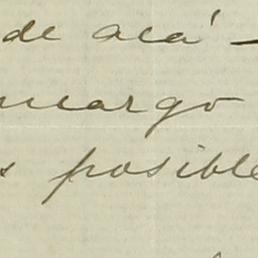 de acá —
ncargo
s posible